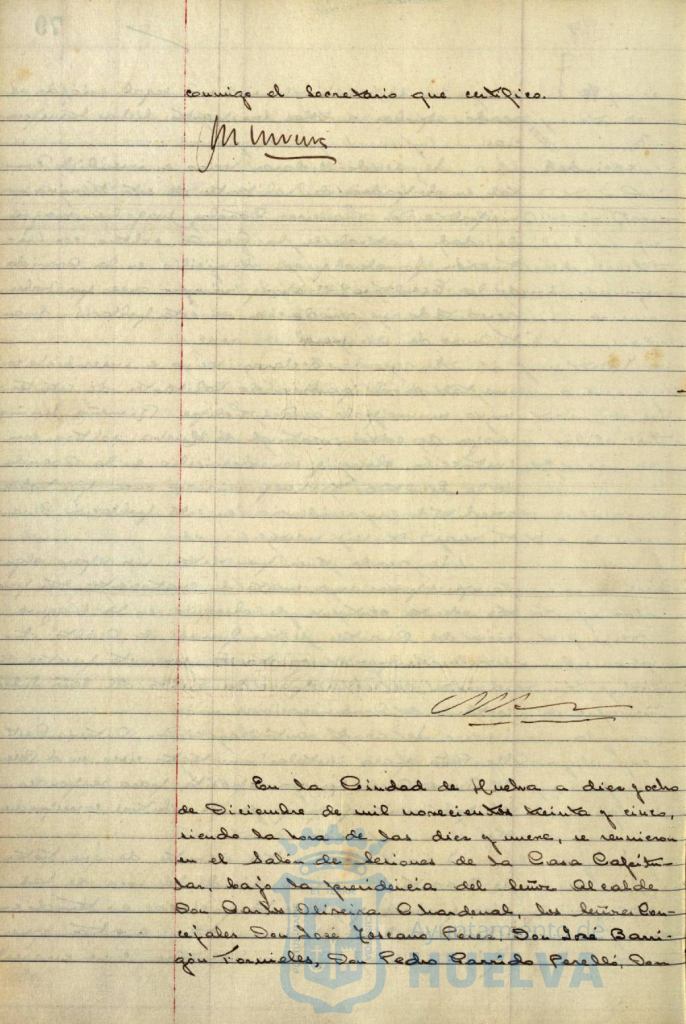 conmigo el Secretario que certifico.
En la Ciudad de Huelva a diez y ocho
de Diciembre de mil novecientos treinta y cinco,
siendo la hora de las diez y nueve, se reunieron
en el Salón de Sesiones de la Casa Capitu-
lar, bajo la presidencia del Señor Alcalde
Don Carlos Oliveira Chardenal, los Señores Con-
cejales Don José Toscano Perez, Don José Barri-
gón Fornieles, Don Pedro Garrido Perelló, Don
Ayuntamiento de
HUELVA